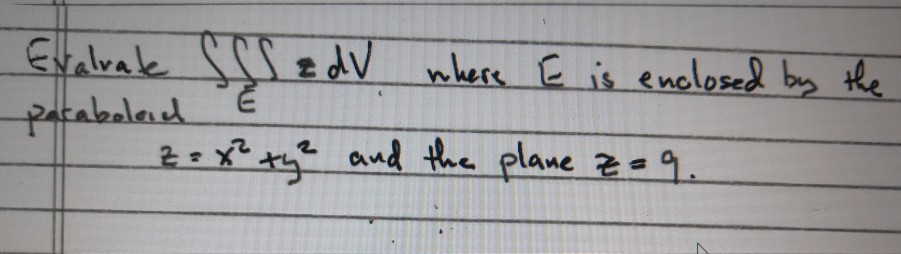 Evaluate ∭ z dV where E is enclosed by the
E
paraboloid
z = x² + y² and the plane z = 9.